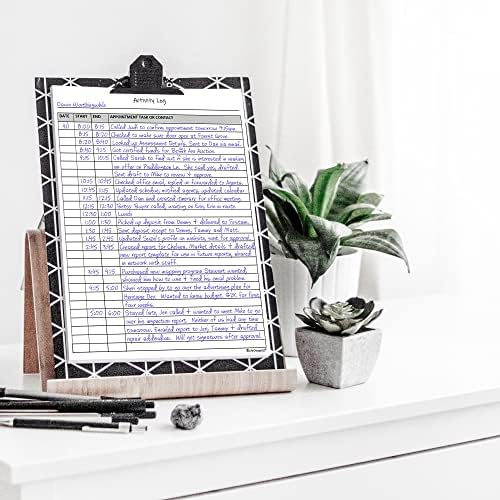 Activity Log
Dawn Worthingwhile
DATE START END APPOINTMENT TASK OR CONTACT
8:00 8:15 Called Judi to confirm appointment tomorrow 9:15am.
8:15 8:20 Checked to make sure door open at Forest Grove.
8:20 8:40 Looked up Assessment Details. Sent to Dan via email.
8:40 9:15 Got certified funds for Booth Ave Auction.
9:15 10:15 Called Sarah to find out if she is interested in making
an offer on Paddington Ln. She said yes, drafted.
Sent draft to Mike to review + approve.
10:15 10:45 Checked office email, replied or forwarded to Agents.
10:45 11:15 Updated schedule, notified agents, updated calendar.
11:15 12:15 Called Dan and created itinerary for office meeting.
12:15 12:30 Betsy Super called, waiting on Erin, Erin en route.
12:30 1:00 Lunch
1:00 1:30 Picked up deposit from Dawn + delivered to Firstam.
1:30 1:45 Sent deposit receipt to Dawn, Tammy and Matt.
1:45 2:45 Updated Suzie's profile on website, sent for approval.
2:45 3:45 Created report for Chelsea. Market details + drafted
new report template for use in future reports, shared
in network with agents.
3:45 4:45 Purchased new mapping program Stewart wanted,
showed him how to use + fixed his email problem.
4:45 5:00 Shari stopped by to go over the advertising plan for
Heritage Dev. Wanted to know budget. $2K for first
four weeks.
5:00 6:00 Stayed late, Jen called + wants Mike to go
over his inspection report. Neither of us had any time
tomorrow. Emailed report to Jen, Tammy + drafted
repair addendum. Will get signatures after approval.